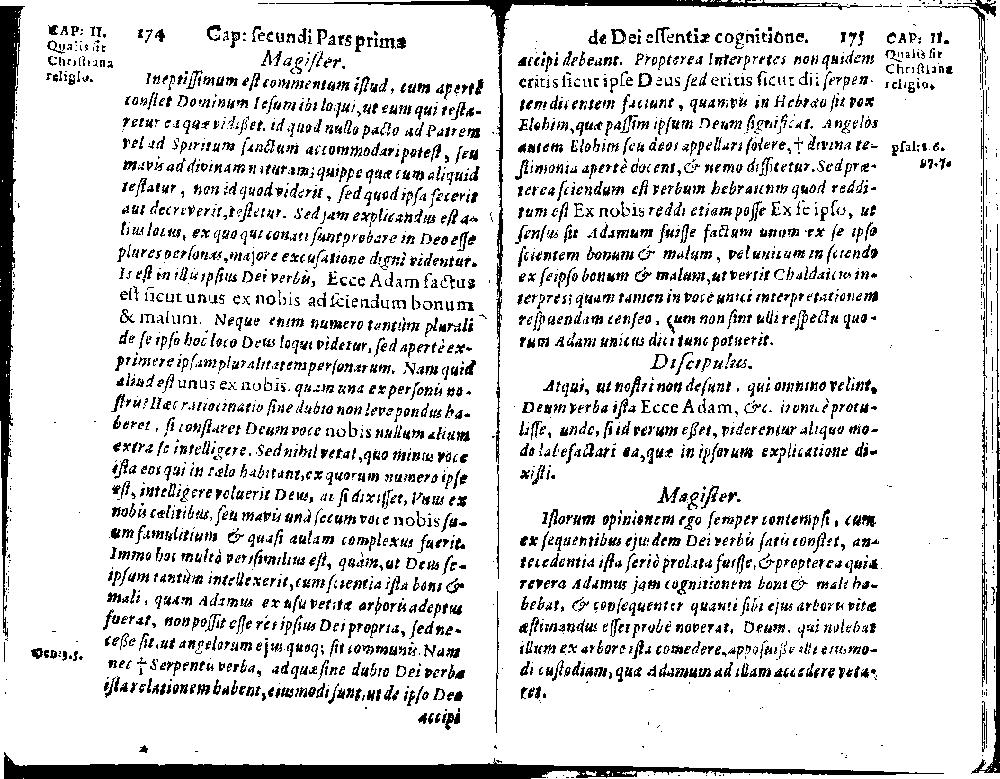 CAP: II.
Qualis sit
Christiana
religio.
174 Cap: secundi Pars prima
Magister.
Ineptissimum est commentum istud, cum apertè
constet Dominum Iesum ibi loqui, ut eum qui testa-
retur ea quæ vidisset. id quod nullo pacto ad Patrem
vel ad Spiritum sanctum accommodari potest, seu
mavis ad divinam naturam; quippe quæ cum aliquid
testatur, non id quod viderit, sed quod ipsa fecerit
aut decreverit, testetur. Sed jam explicandus est a-
lius locus, ex quo qui conati sunt probare in Deo esse
plures personas, majore excusatione digni videntur.
Is est in illis ipsius Dei verbis, Ecce Adam factus
est sicut unus ex nobis ad sciendum bonum
& malum. Neque enim numero tantùm plurali
de se ipso hoc loco Deus loqui videtur, sed apertè ex-
primere ipsam pluralitatem personarum. Nam quid
aliud est unus ex nobis. quam una ex personis no-
stris? Hæc ratiocinatio sine dubio non leve pondus ha-
beret, si constaret Deum voce nobis nullum alium
extra se intelligere. Sed nihil vetat, quo minus voce
ista eos qui in cælo habitant, ex quorum numero ipse
est, intelligere voluerit Deus, ac si dixisset, Vnus ex
nobis cælitibus, seu mavis unà secum voce nobis su-
um famulitium & quasi aulam complexus fuerit.
Immo hoc multò verisimilius est, quàm, ut Deus se-
ipsum tantùm intellexerit, cum scientia ista boni &
mali, quam Adamus ex usu vetitæ arboris adeptus
fuerat, non possit esse res ipsius Dei propria, sed ne-
cesse sit, ut angelorum ejus quoq; sit communis. Nam
Gen: 3.5.
nec † Serpentis verba, ad quæ sine dubio Dei verba
ista relationem habent, eiusmodi sunt, ut de ipso Deo
accipi
de Dei essentiæ cognitione. 175
CAP: II.
Qualis sit
Christiana
religio.
accipi debeant. Propterea Interpretes non quidem
eritis sicut ipse Deus sed eritis sicut dii serpen-
tem dicentem faciunt, quamvis in Hebræo sit vox
Elohim, quæ passim ipsum Deum significat. Angelos
autem Elohim seu deos appellari solere, † divina te-
psal: 8.6.
97.7.
stimonia apertè docent, & nemo diffitetur. Sed præ-
terea sciendum est verbum hebraicum quod reddi-
tum est Ex nobis reddi etiam posse Ex se ipso, ut
sensus sit Adamum fuisse factum unum ex se ipso
scientem bonum & malum, vel unicum in sciendo
ex seipso bonum & malum, ut vertit Chaldaicus in-
terpres; quam tamen in voce unici interpretationem
respuendam censeo, cum non sint ulli respectu quo-
rum Adam unicus dici tunc potuerit.
Discipulus.
Atqui, ut nostri non desunt, qui omnino velint,
Deum verba ista Ecce Adam, &c. ironicè protu-
lisse, unde, si id verum esset, viderentur aliquo mo-
do labefactari ea, quæ in ipsorum explicatione di-
xisti.
Magister.
Istorum opinionem ego semper contempsi, cum
ex sequentibus ejusdem Dei verbis satis constet, an-
tecedentia ista seriò prolata fuisse, & propterea quia
revera Adamus jam cognitionem boni & mali ha-
bebat, & consequenter quanti sibi ejus arboris vitæ
æstimandus esset probè noverat. Deum, qui nolebat
illum ex arbore ista comedere, apposuisse illi eiusmo-
di custodiam, quæ Adamum ad illam accedere veta-
ret.